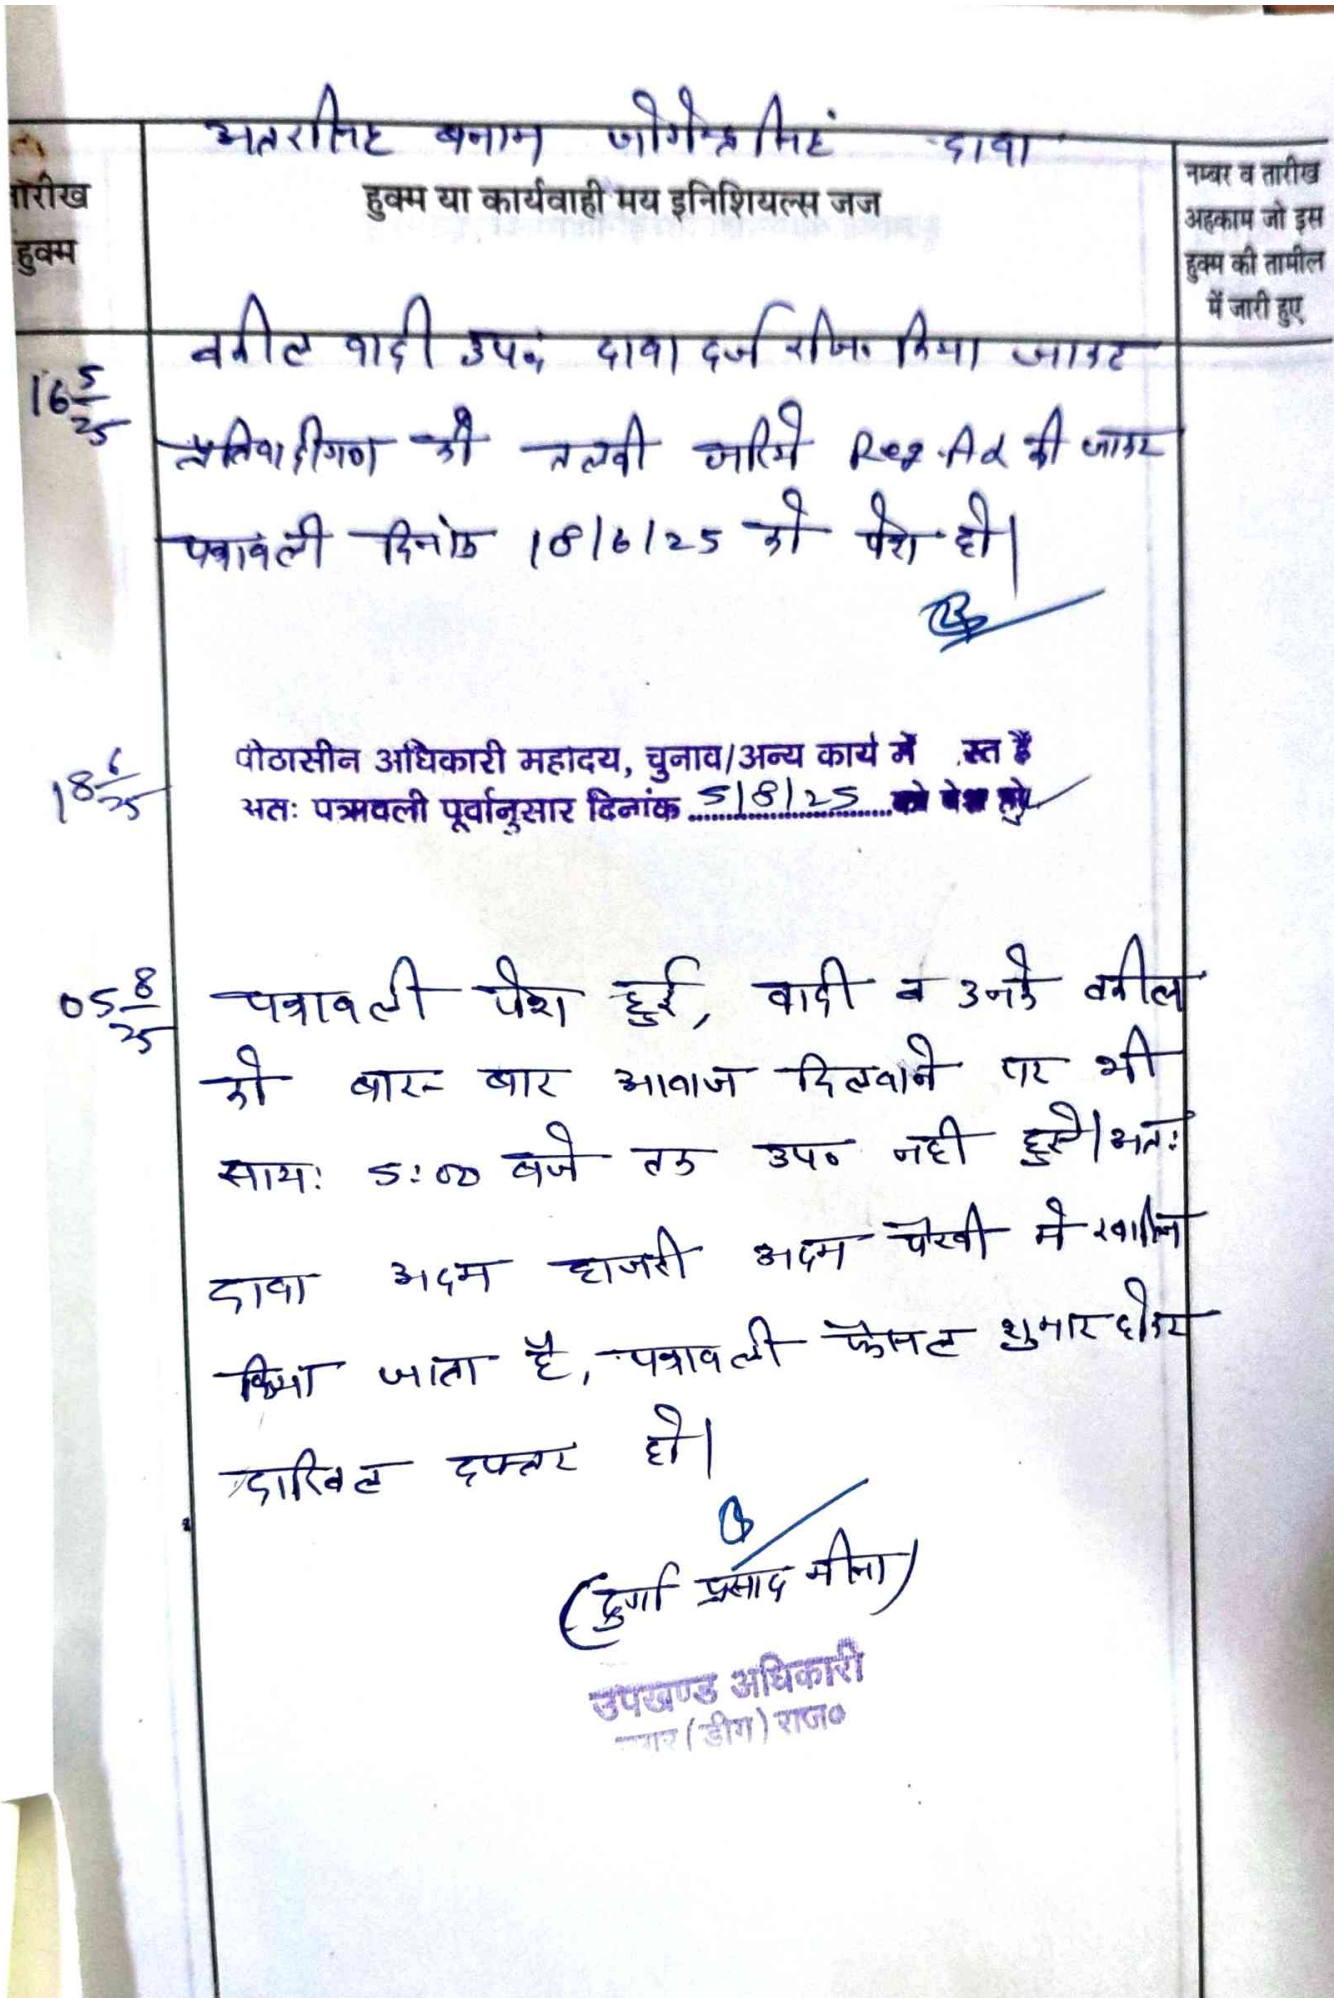 अतरसिंह बनाम जोगेन्द्रसिंह दावा
तारीख
हुक्म
हुक्म या कार्यवाही मय इनिशियल्स जज
नम्बर व तारीख
अहकाम जो इस
हुक्म की तामील
में जारी हुए
16 5/25
वकील वादी उप० दावा दर्ज रजि० किया जाकर
प्रतिवादीगण की तलवी जरिये Reg. Ad की जाकर
पत्रावली दिनांक 18/6/25 को पेश हो।
18 6/25
पीठासीन अधिकारी महादय, चुनाव/अन्य कार्य में स्त हैं
अतः पत्रावली पूर्वानुसार दिनांक 5/8/25 को पेश हो
05 8/25
पत्रावली पेश हुई, वादी व उनके वकील
को बार-बार आवाज दिलवाने पर भी
सायः 5:00 बजे तक उप० नही हुये। अतः
दावा अदम हाजरी अदम पैरवी मे खारिज
किया जाता है, पत्रावली फैसल शुमार होकर
दाखिल दफ्तर हो।
(दुर्गा प्रसाद मीना)
उपखण्ड अधिकारी
नगर (डीग) राज०